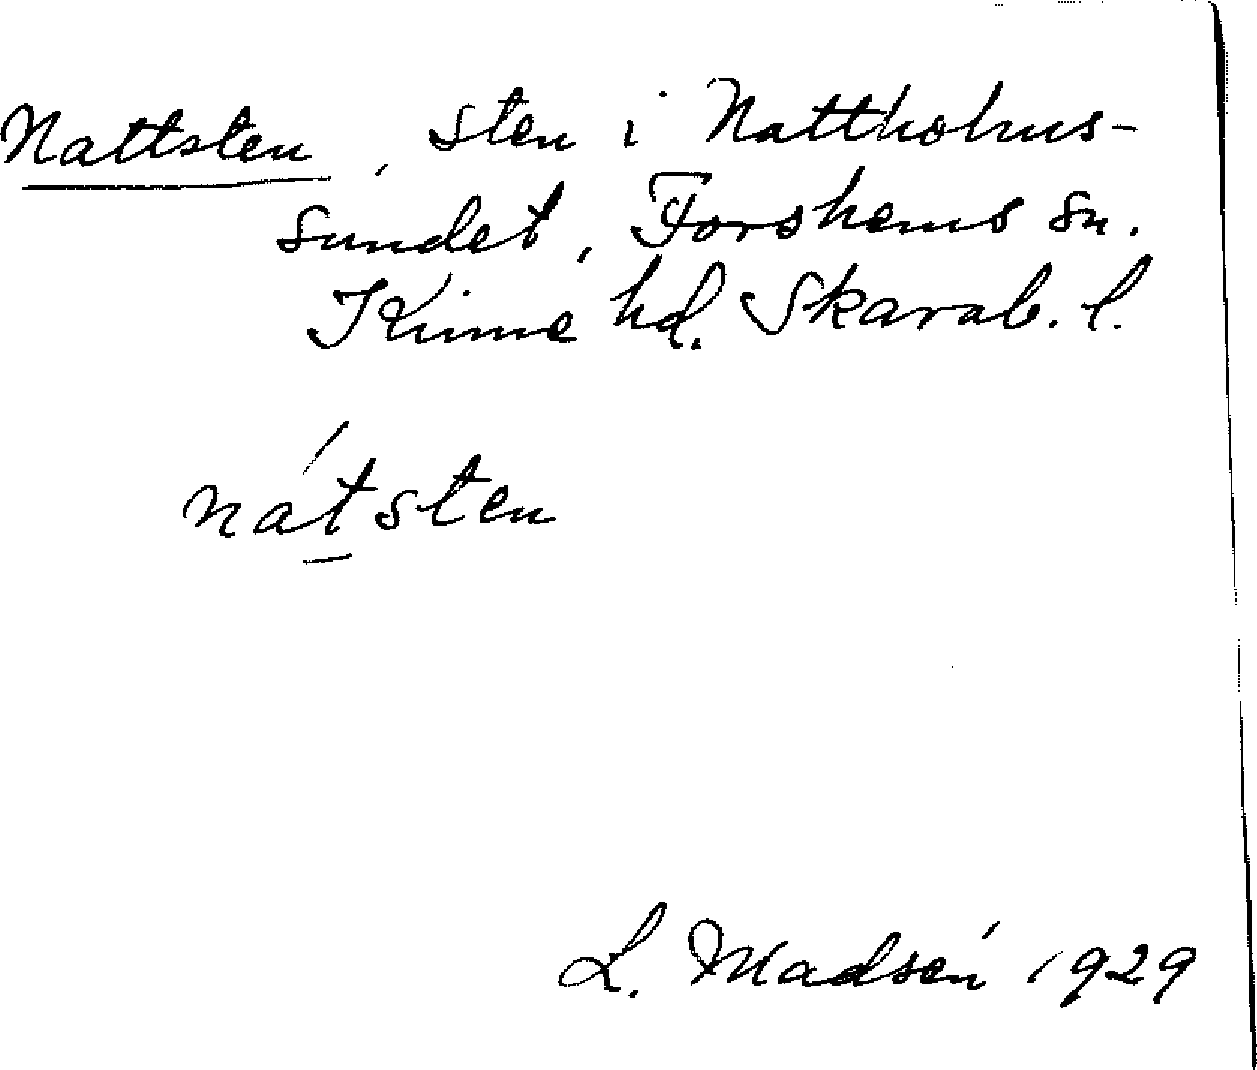 Nattsten, sten i Nattholms-
sundet, Forshems sn.
Kinne hd. Skarab. l.
nátsten
L. Madsén 1929